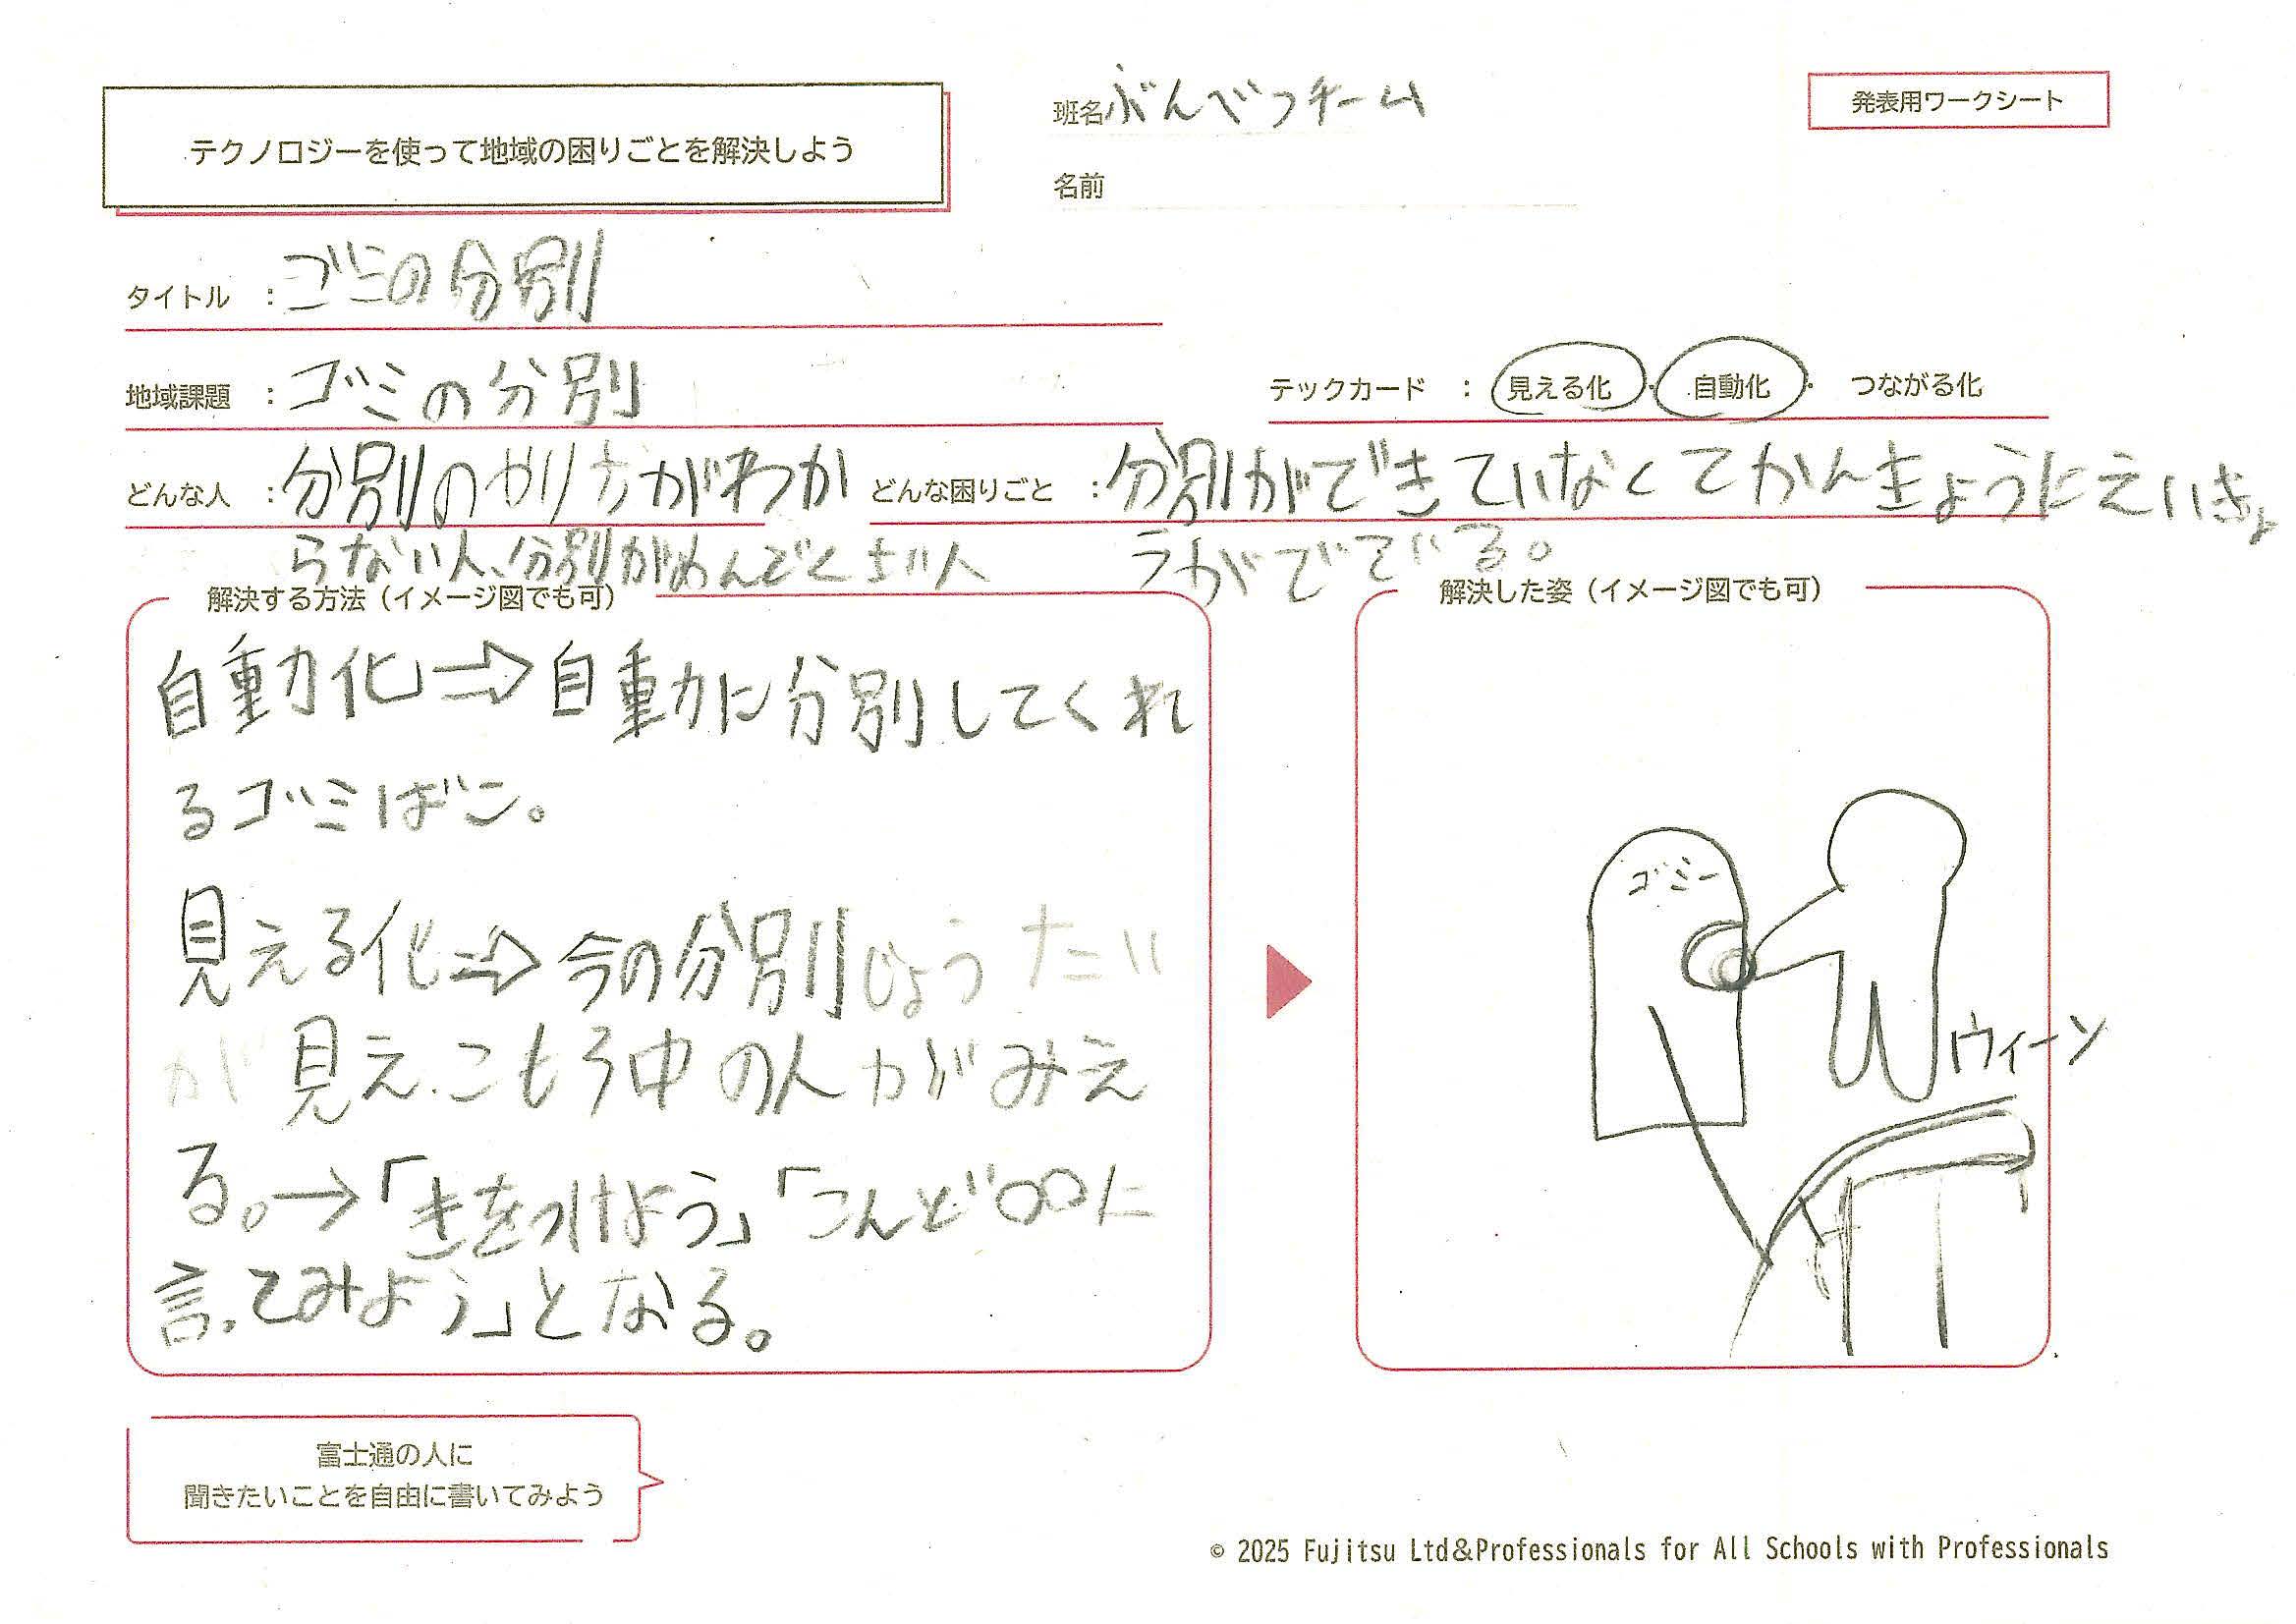 テクノロジーを使って地域の困りごとを解決しよう
班名 ぶんべつチーム
発表用ワークシート
名前
タイトル : ゴミの分別
地域課題 : ゴミの分別
テックカード : 見える化 ・ 自動化 ・ つながる化
どんな人 : 分別のやり方がわか
らない人、分別がめんどくさい人
どんな困りごと : 分別ができていなくてかんきょうにえいきょ
うがでている。
解決する方法（イメージ図でも可）
自動化⇒自動に分別してくれ
るゴミばこ。
見える化⇒今の分別じょうたい
が見え、こもろ中の人がみえ
る。→「きをつけよう」「こんど〇〇に
言ってみよう」となる。
解決した姿（イメージ図でも可）
ゴミー
ウィーン
富士通の人に
聞きたいことを自由に書いてみよう
© 2025 Fujitsu Ltd&Professionals for All Schools with Professionals